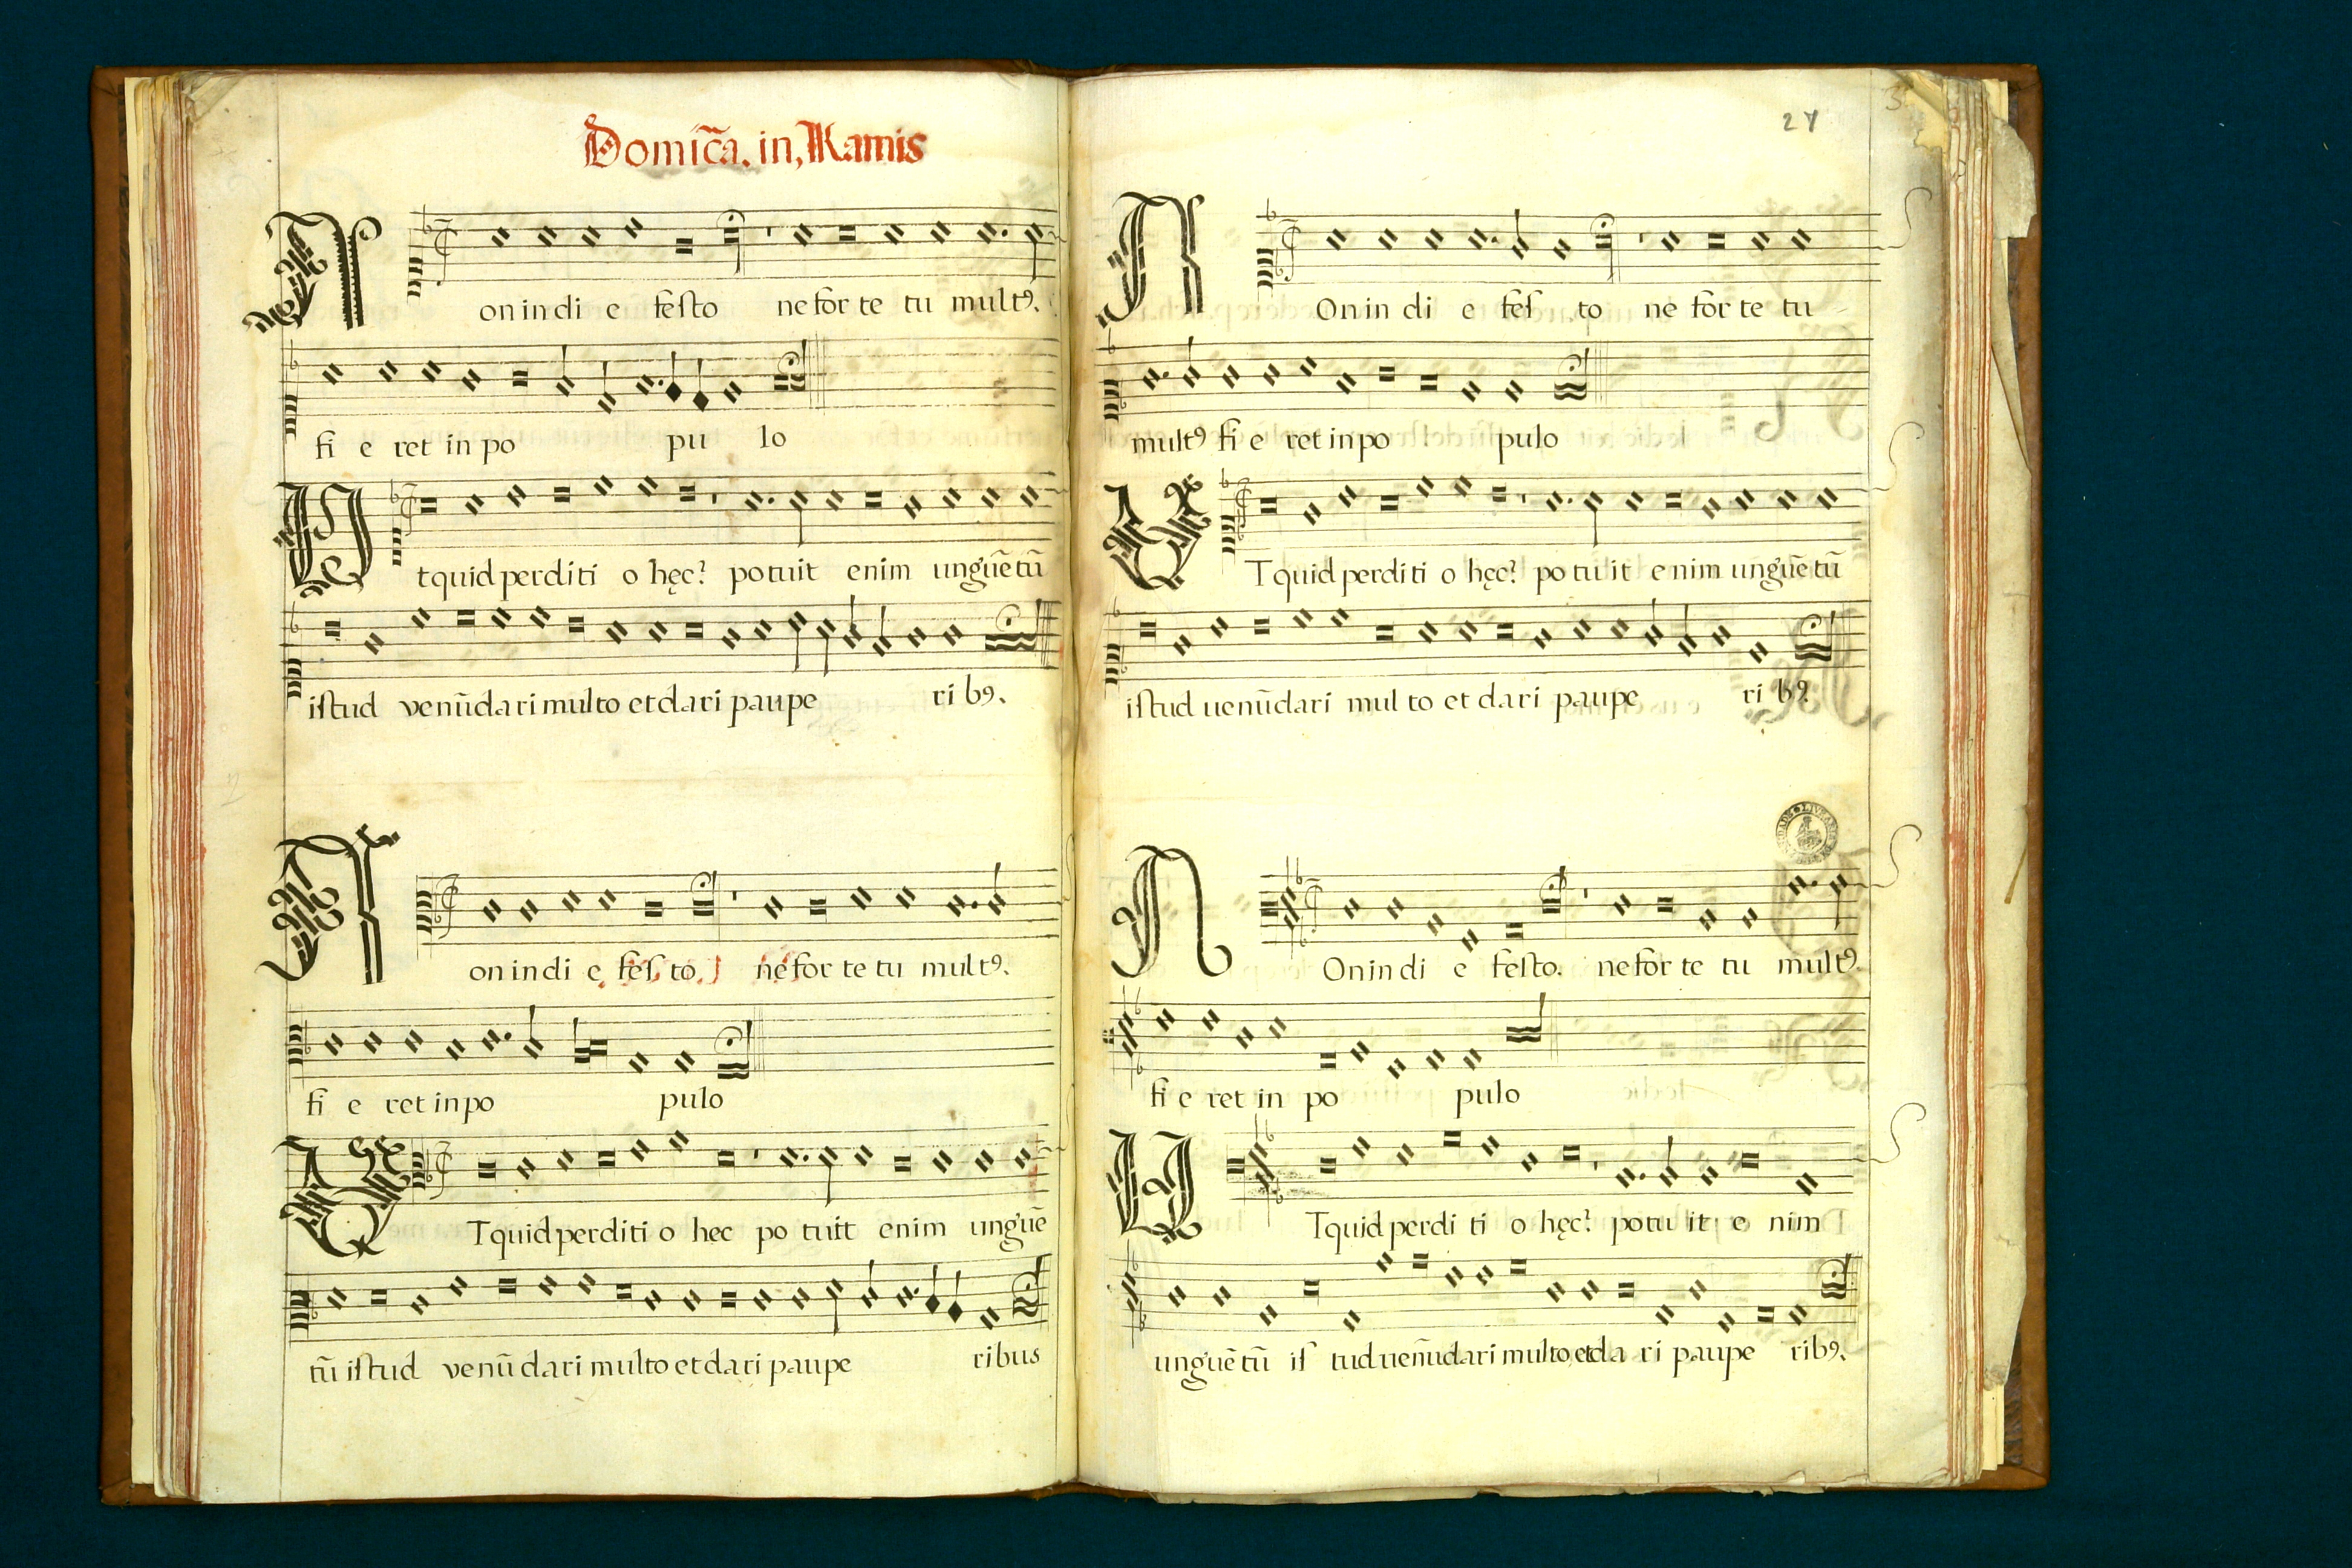 Domic̃a. in, Ramis
Non in di e feſto ne for te tu multꝰ.
fi e ret in po pu lo
Vt quid perditi o hęc? potuit enim unguẽtũ
iſtud venũdari multo et dari paupe ribꝰ.
Non in di e feſ to. ne for te tu multꝰ.
fi e ret in po pulo
VT quid perditi o hec po tuit enim unguẽ
tũ iſtud venũ dari multo et dari paupe ribus
27
NOn in di e feſ to ne for te tu
multꝰ fi e ret in po pulo
VT quid perditi o hęc? po tu it enim unguẽtũ
iſtud uenũdari mul to et dari paupe ribꝰ.
NOn in di e feſto. ne for te tu multꝰ
fi e ret in po pulo
VT quid perdi ti o hęc? potu it e nim
unguẽtũ iſ tud uenũdari multo, et da ri paupe ribꝰ.